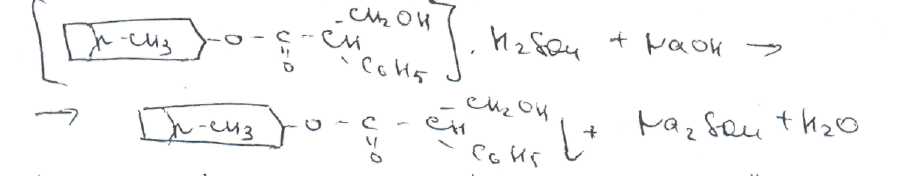 [N-CH3 -O-C(=O)-CH(-CH2OH)(-C6H5)] · H2SO4 + NaOH →
→ N-CH3 -O-C(=O)-CH(-CH2OH)(-C6H5) ↓ + Na2SO4 + H2O